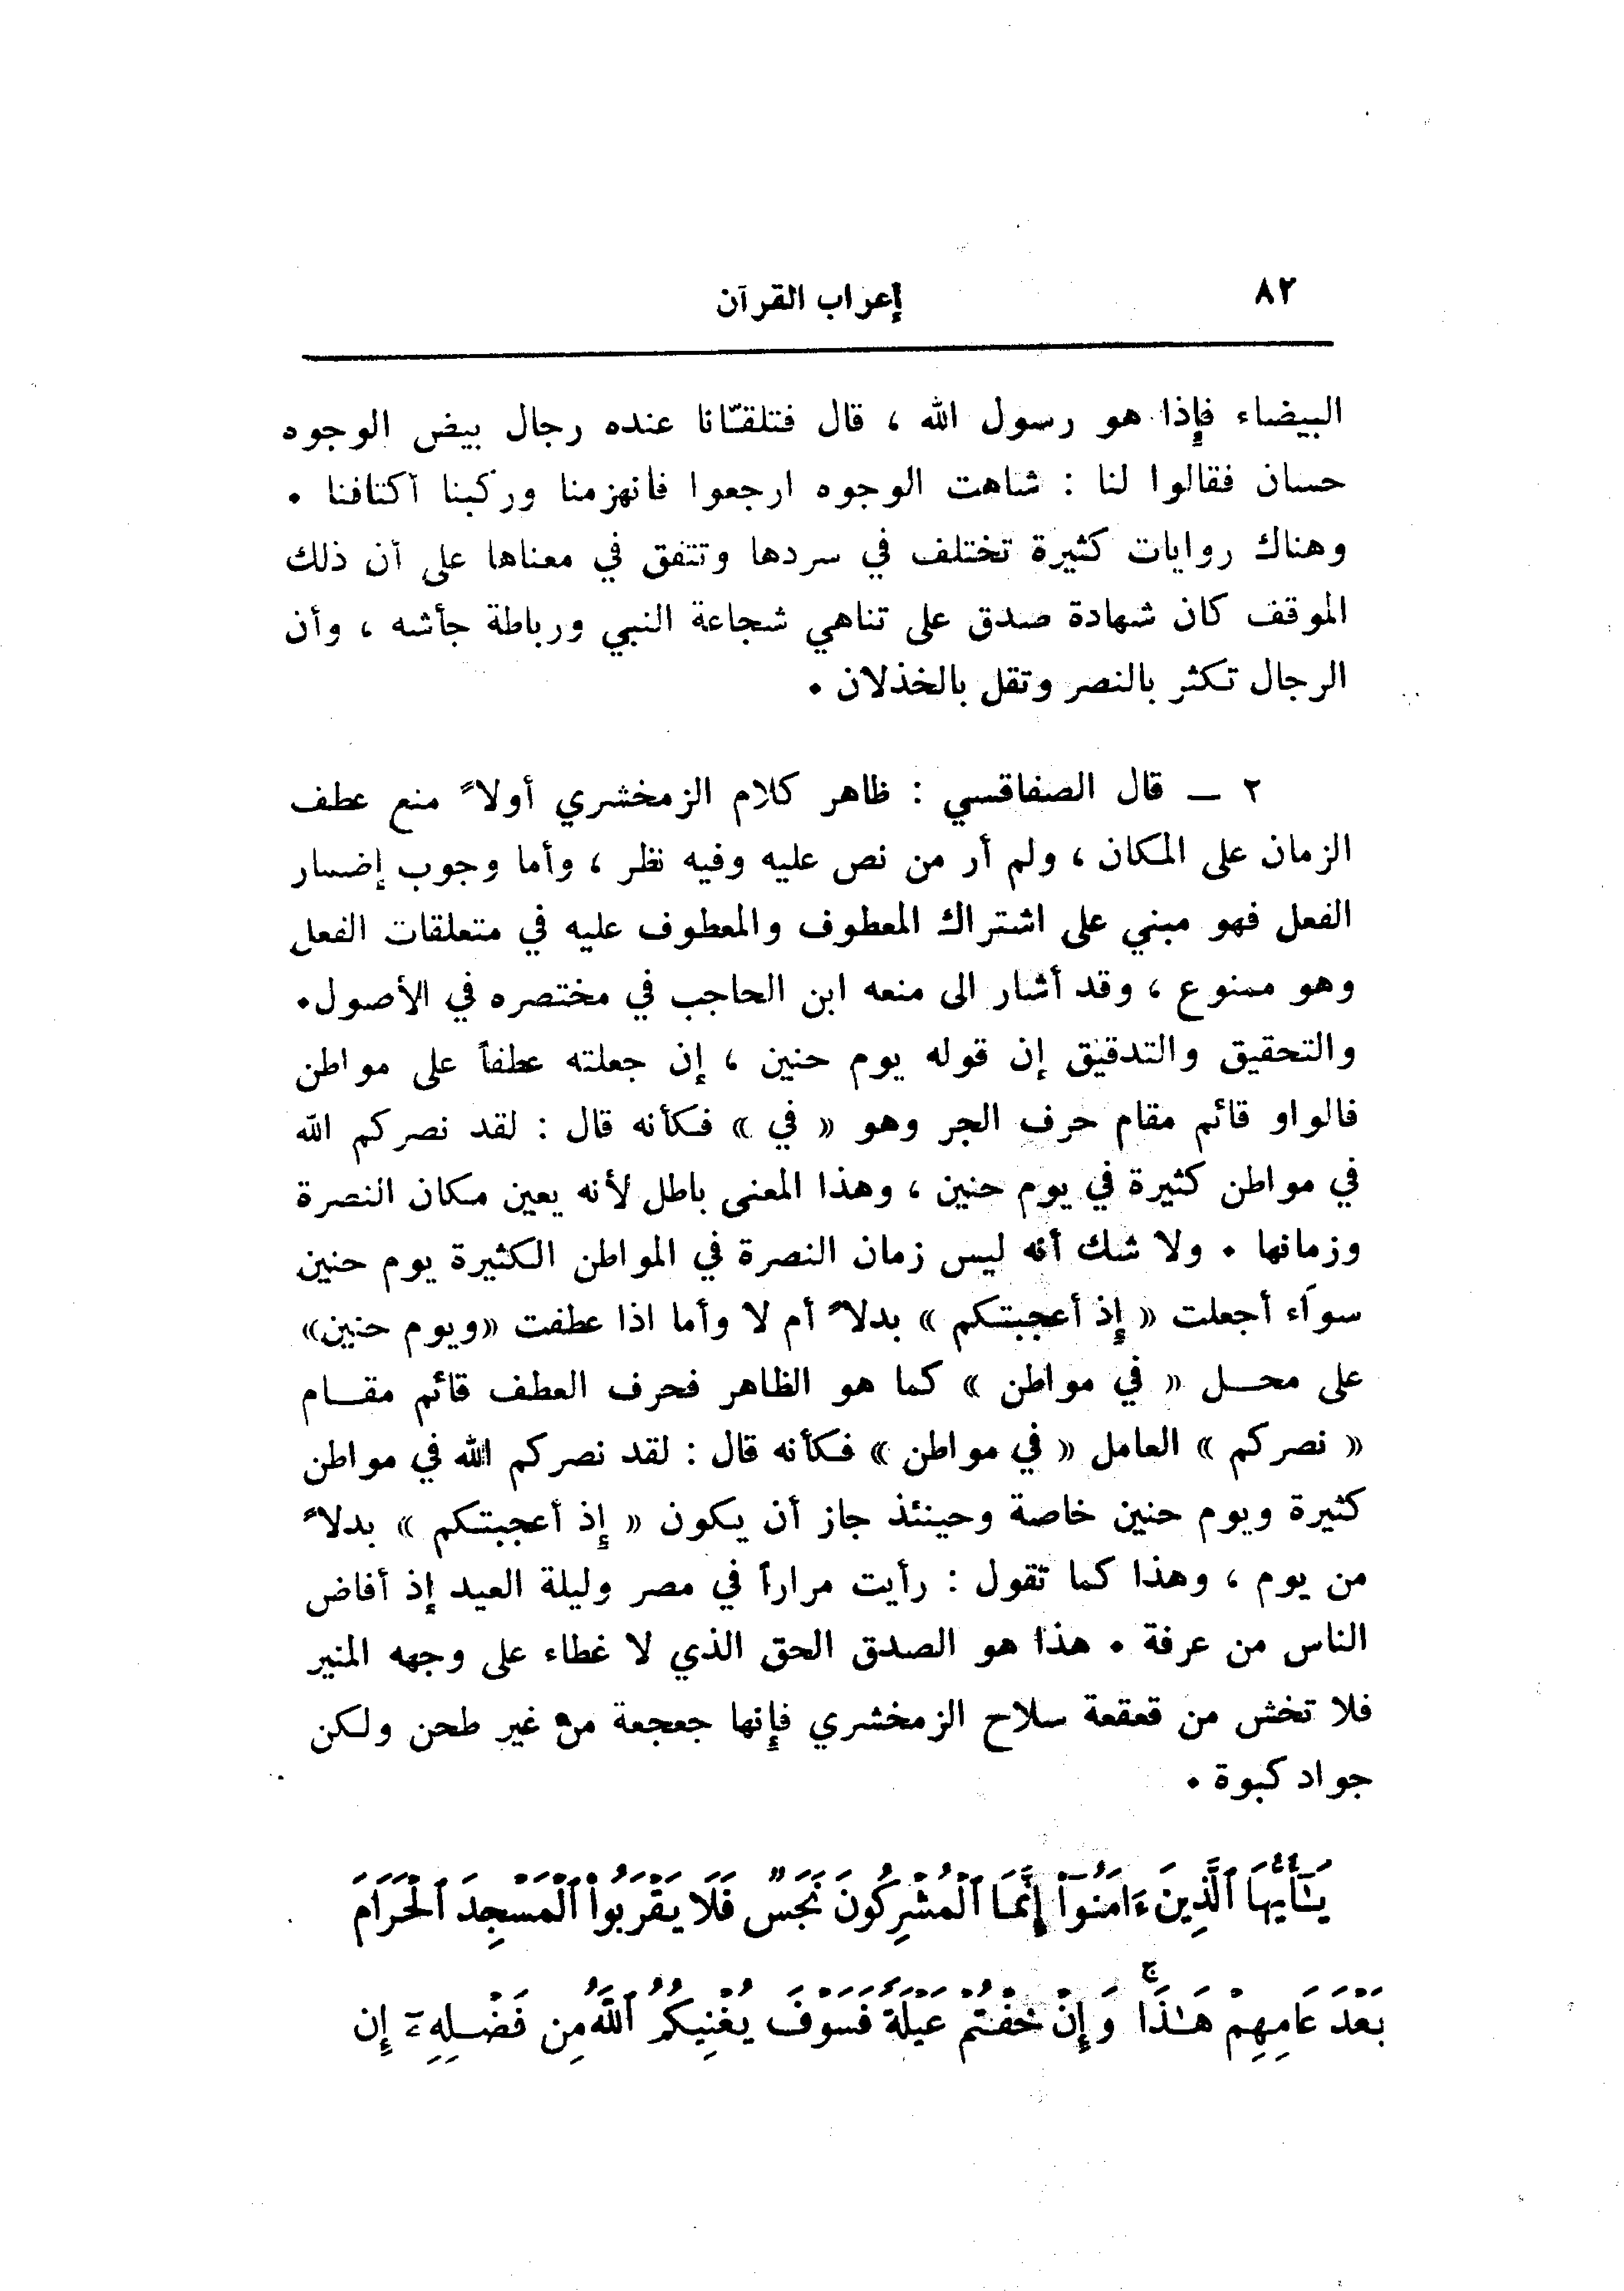 ٨٢ إعراب القرآن
البيضاء فإذا هو رسول الله ، قال فتلقّانا عنده رجال بيض الوجوه
حسان فقالوا لنا : شاهت الوجوه ارجعوا فانهزمنا وركبنا أكتافنا .
وهناك روايات كثيرة تختلف في سردها وتتفق في معناها على أن ذلك
الموقف كان شهادة صدق على تناهي شجاعة النبي ورباطة جأشه ، وأن
الرجال تكثر بالنصر وتقل بالخذلان .
٢ ـ قال الصفاقسي : ظاهر كلام الزمخشري أولاً منع عطف
الزمان على المكان ، ولم أر من نص عليه وفيه نظر ، وأما وجوب إضمار
الفعل فهو مبني على اشتراك المعطوف والمعطوف عليه في متعلقات الفعل
وهو ممنوع ، وقد أشار الى منعه ابن الحاجب في مختصره في الأصول.
والتحقيق والتدقيق إن قوله يوم حنين ، إن جعلته عطفاً على مواطن
فالواو قائم مقام حرف الجر وهو « في » فكأنه قال : لقد نصركم الله
في مواطن كثيرة في يوم حنين ، وهذا المعنى باطل لأنه يعين مكان النصرة
وزمانها . ولا شك أنه ليس زمان النصرة في المواطن الكثيرة يوم حنين
سواء أجعلت « إذ أعجبتكم » بدلاً أم لا وأما اذا عطفت «ويوم حنين»
على محــل « في مواطن » كما هو الظاهر فحرف العطف قائم مقــام
« نصركم » العامل « في مواطن » فكأنه قال : لقد نصركم الله في مواطن
كثيرة ويوم حنين خاصة وحينئذ جاز أن يكون « إذ أعجبتكم » بدلاً
من يوم ، وهذا كما تقول : رأيت مراراً في مصر وليلة العيد إذ أفاض
الناس من عرفة . هذا هو الصدق الحق الذي لا غطاء على وجهه المنير
فلا تخش من قعقعة سلاح الزمخشري فإنها جعجعة من غير طحن ولكن
جواد كبوة .
يَـٰٓأَيُّهَا ٱلَّذِينَ ءَامَنُوٓا۟ إِنَّمَا ٱلْمُشْرِكُونَ نَجَسٌ فَلَا يَقْرَبُوا۟ ٱلْمَسْجِدَ ٱلْحَرَامَ
بَعْدَ عَامِهِمْ هَـٰذَا ۚ وَإِنْ خِفْتُمْ عَيْلَةً فَسَوْفَ يُغْنِيكُمُ ٱللَّهُ مِن فَضْلِهِۦٓ إِن